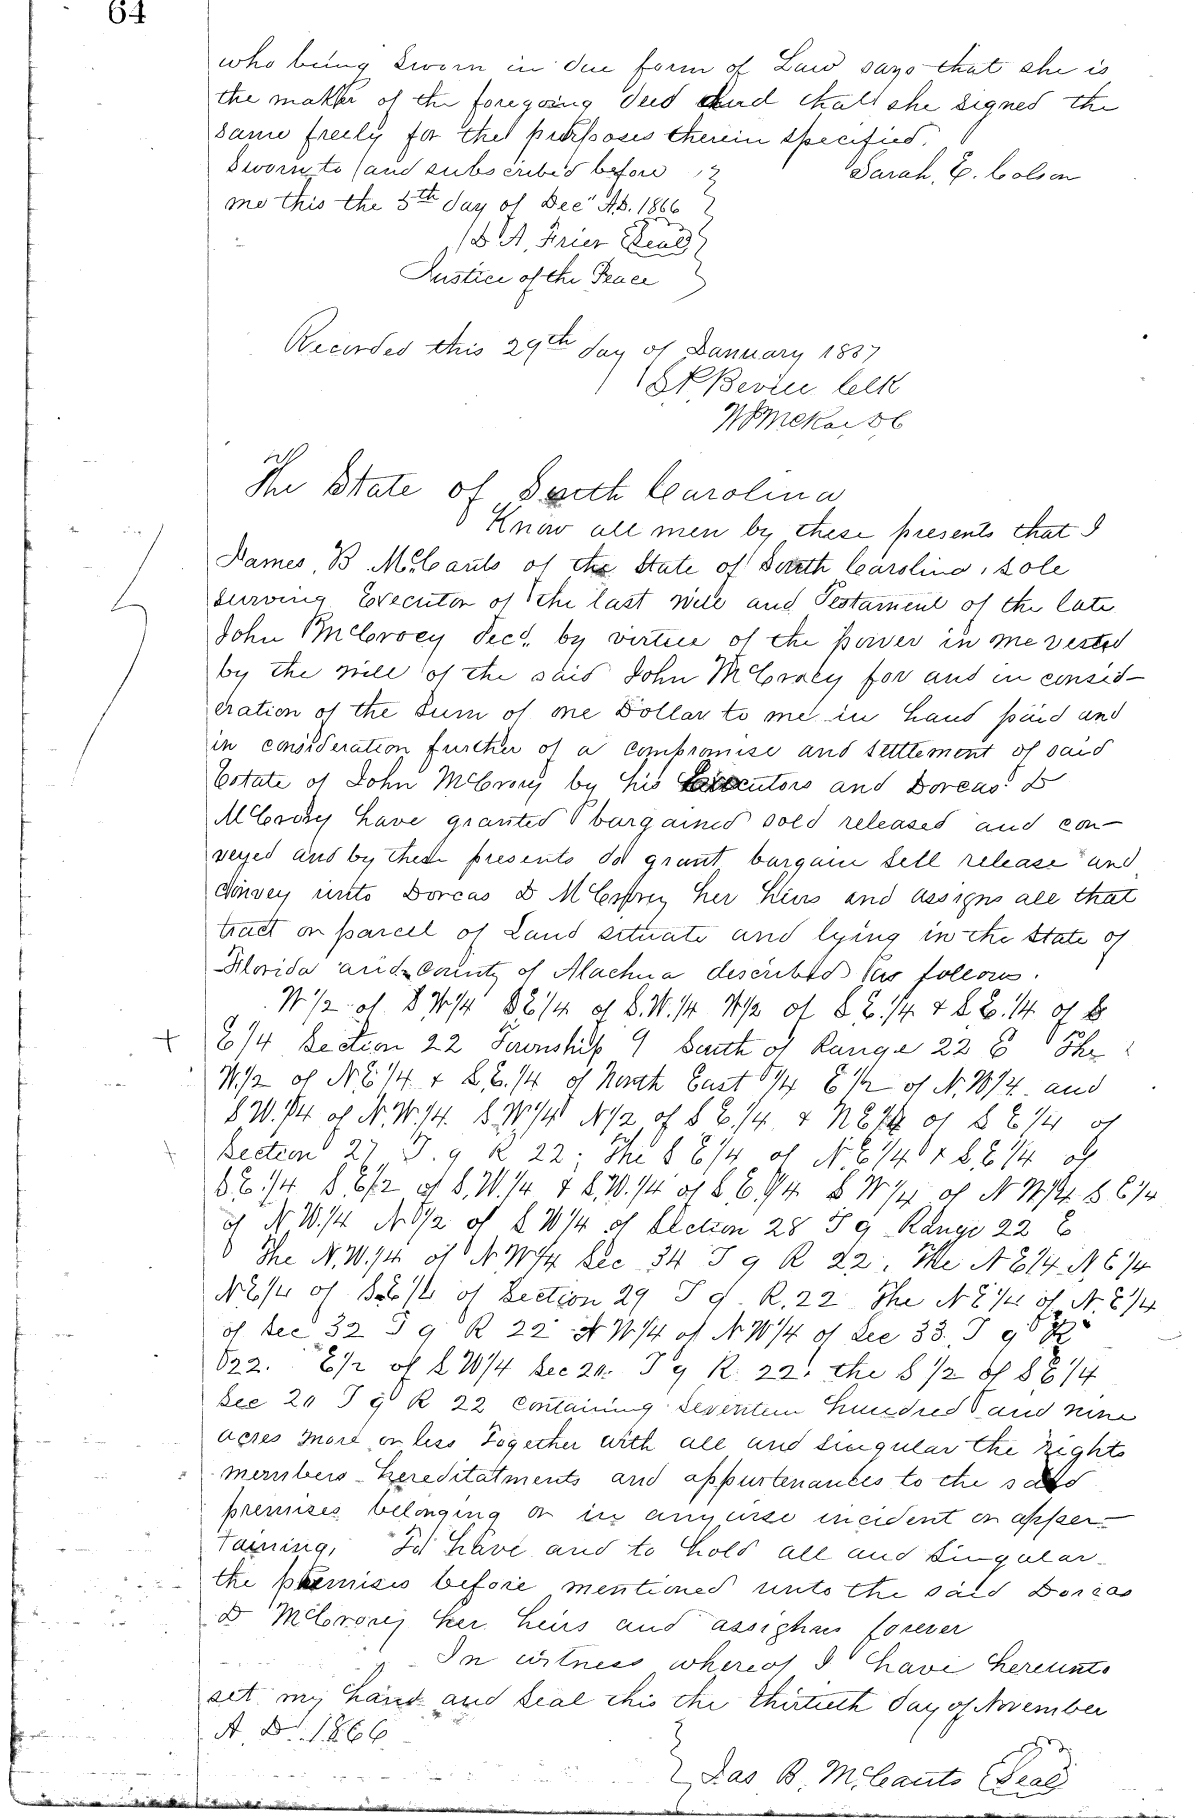 64
who being Sworn in due form of Law says that she is
the maker of the foregoing deed and that she signed the
same freely for the purposes therein specified.
Sworn to and subscribed before
Sarah. E. Colson
me this the 5th day of Dec" A.D. 1866
D A, Frier (Seal)
Justice of the Peace
Recorded this 29th day of January 1867
Clk
D C
The State of South Carolina
Know all men by these presents that I
James. B. McCants of the State of South Carolina, sole
surving Executor of the last will and Testament of the late
John McCrory decd. by virtue of the power in me vested
by the will of the said John McCrory for and in consid-
eration of the Sum of one Dollar to me in hand paid and
in consideration further of a compromise and settlement of said
Estate of John McCrory by his Executors and Dorcas D
McCrory have granted bargained sold released and con-
veyed and by these presents do grant bargain Sell release and
convey unto Dorcas D McCrory her heirs and assigns all that
tract or parcel of Land situate and lying in the State of
Florida and County of Alachua described as follows.
W 1/2 of S W 1/4 S E 1/4 of S. W. 1/4 W 1/2 of S. E. 1/4 & S E. 1/4 of S
E 1/4 Section 22 Township 9 South of Range 22 E The
W. 1/2 of N. E 1/4 & S. E. 1/4 of North East 1/4 E 1/2 of N. W 1/4 and
S W. 1/4 of N. W. 1/4. S. W 1/4 N 1/2 of S E. 1/4 & N E 1/4 of S E 1/4 of
Section 27 T. 9 R 22; The S E 1/4 of N. E 1/4 & S. E 1/4 of
S. E. 1/4 S. E 1/2 of S. W. 1/4 & S. W. 1/4 of S. E. 1/4 S W 1/4 of N W 1/4 S E 1/4
of N. W. 1/4 N 1/2 of S W 1/4 of Section 28 T 9 Range 22 E
The N. W. 1/4 of N. W 1/4 Sec 34 T 9 R 22. The N E 1/4 N. E 1/4
N. E 1/4 of S. E 1/4 of Section 29 T 9 R. 22 The N E 1/4 of N. E 1/4
of Sec 32 T 9 R 22 N W 1/4 of N W 1/4 of Sec 33. T 9 R
22. E 1/2 of S W 1/4 Sec T 9 R. 22. the S 1/2 of S E 1/4
Sec T 9 R 22 containing Seventeen hundred and nine
acres more or less Together with all and Singular the rights
members hereditatments and appurtenances to the said
premises belonging or in anywise incident or apper-
taining, To have and to hold all and Singular
the premises before mentioned unto the said Dorcas
D McCrory her heirs and assighns forever
In witness whereof I have hereunto
set my hand and Seal this the thirtieth day of November
A. D. 1866
Jas B. McCants (Seal)